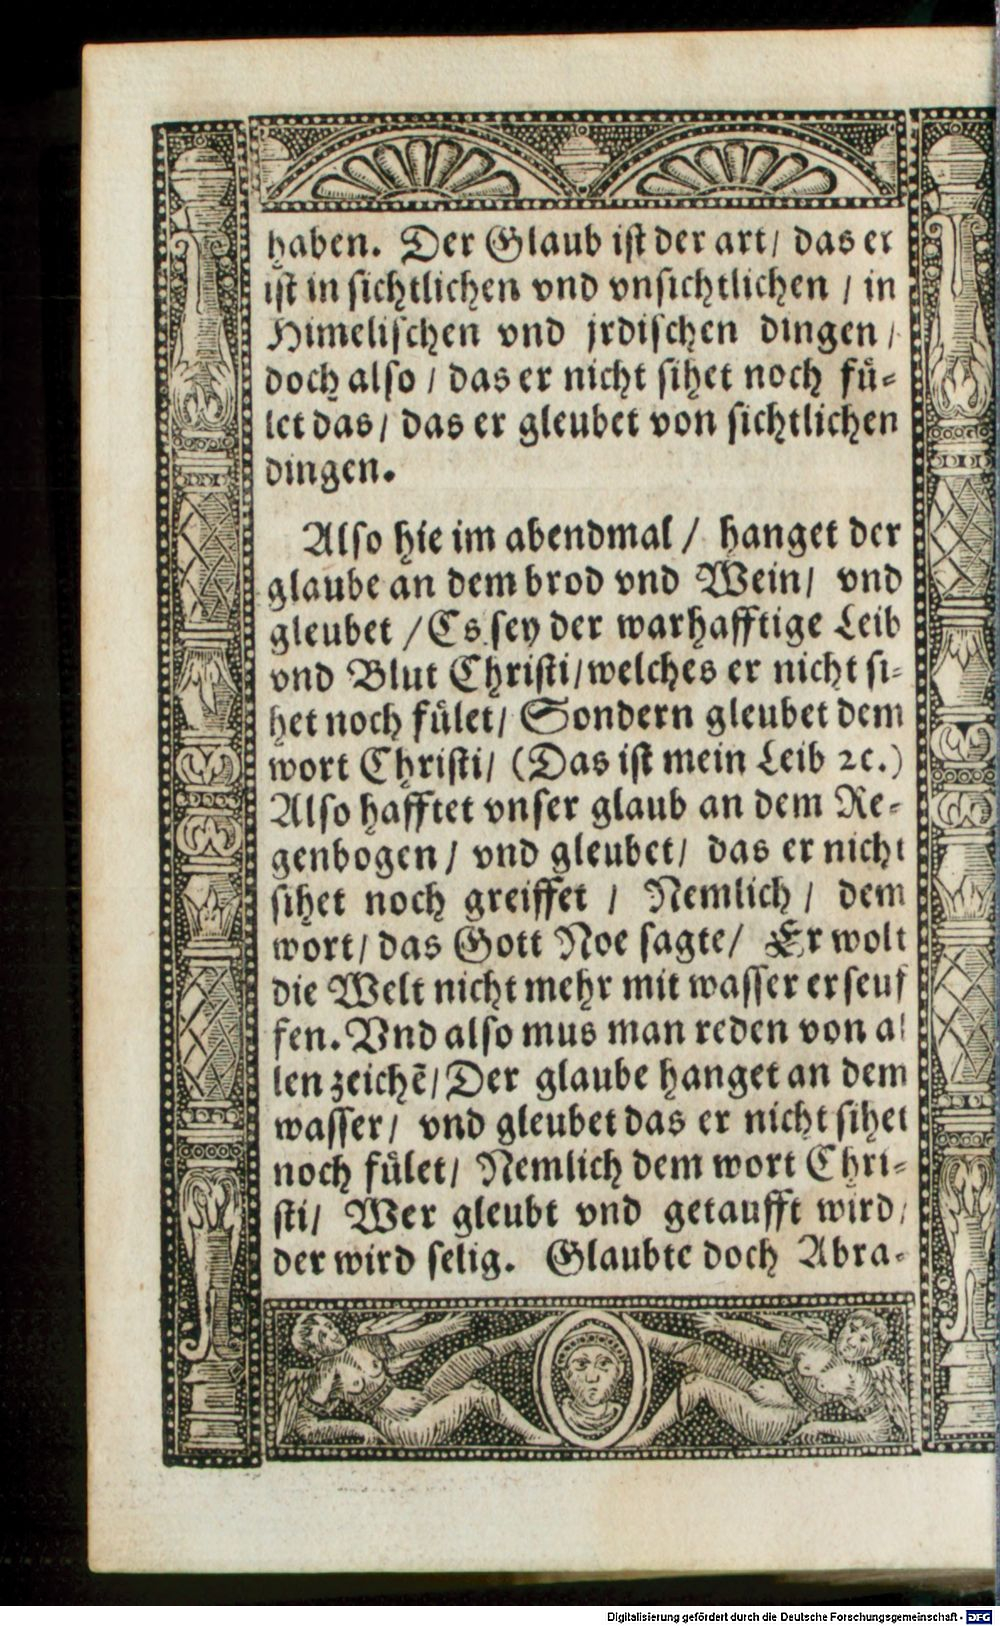 haben. Der Glaub ist der art/ das er
ist in sichtlichen vnd vnsichtlichen / in
Himelischen vnd jrdischen dingen/
doch also / das er nicht sihet noch fuͤ-
let das/ das er gleubet von sichtlichen
dingen.
Also hie im abendmal / hanget der
glaube an dem brod vnd Wein/ vnd
gleubet /Es sey der warhafftige Leib
vnd Blut Christi/welches er nicht si-
het noch fuͤlet/ Sondern gleubet dem
wort Christi/ (Das ist mein Leib ꝛc.)
Also hafftet vnser glaub an dem Re-
genbogen/ vnd gleubet/ das er nicht
sihet noch greiffet / Nemlich/ dem
wort/ das Gott Noe sagte/ Er wolt
die Welt nicht mehr mit wasser erseuf
fen. Vnd also mus man reden von al
len zeichẽ/Der glaube hanget an dem
wasser/ vnd gleubet das er nicht sihet
noch fuͤlet/ Nemlich dem wort Chri-
sti/ Wer gleubt vnd getaufft wird/
der wird selig. Glaubte doch Abra-
Digitalisierung gefördert durch die Deutsche Forschungsgemeinschaft - DFG